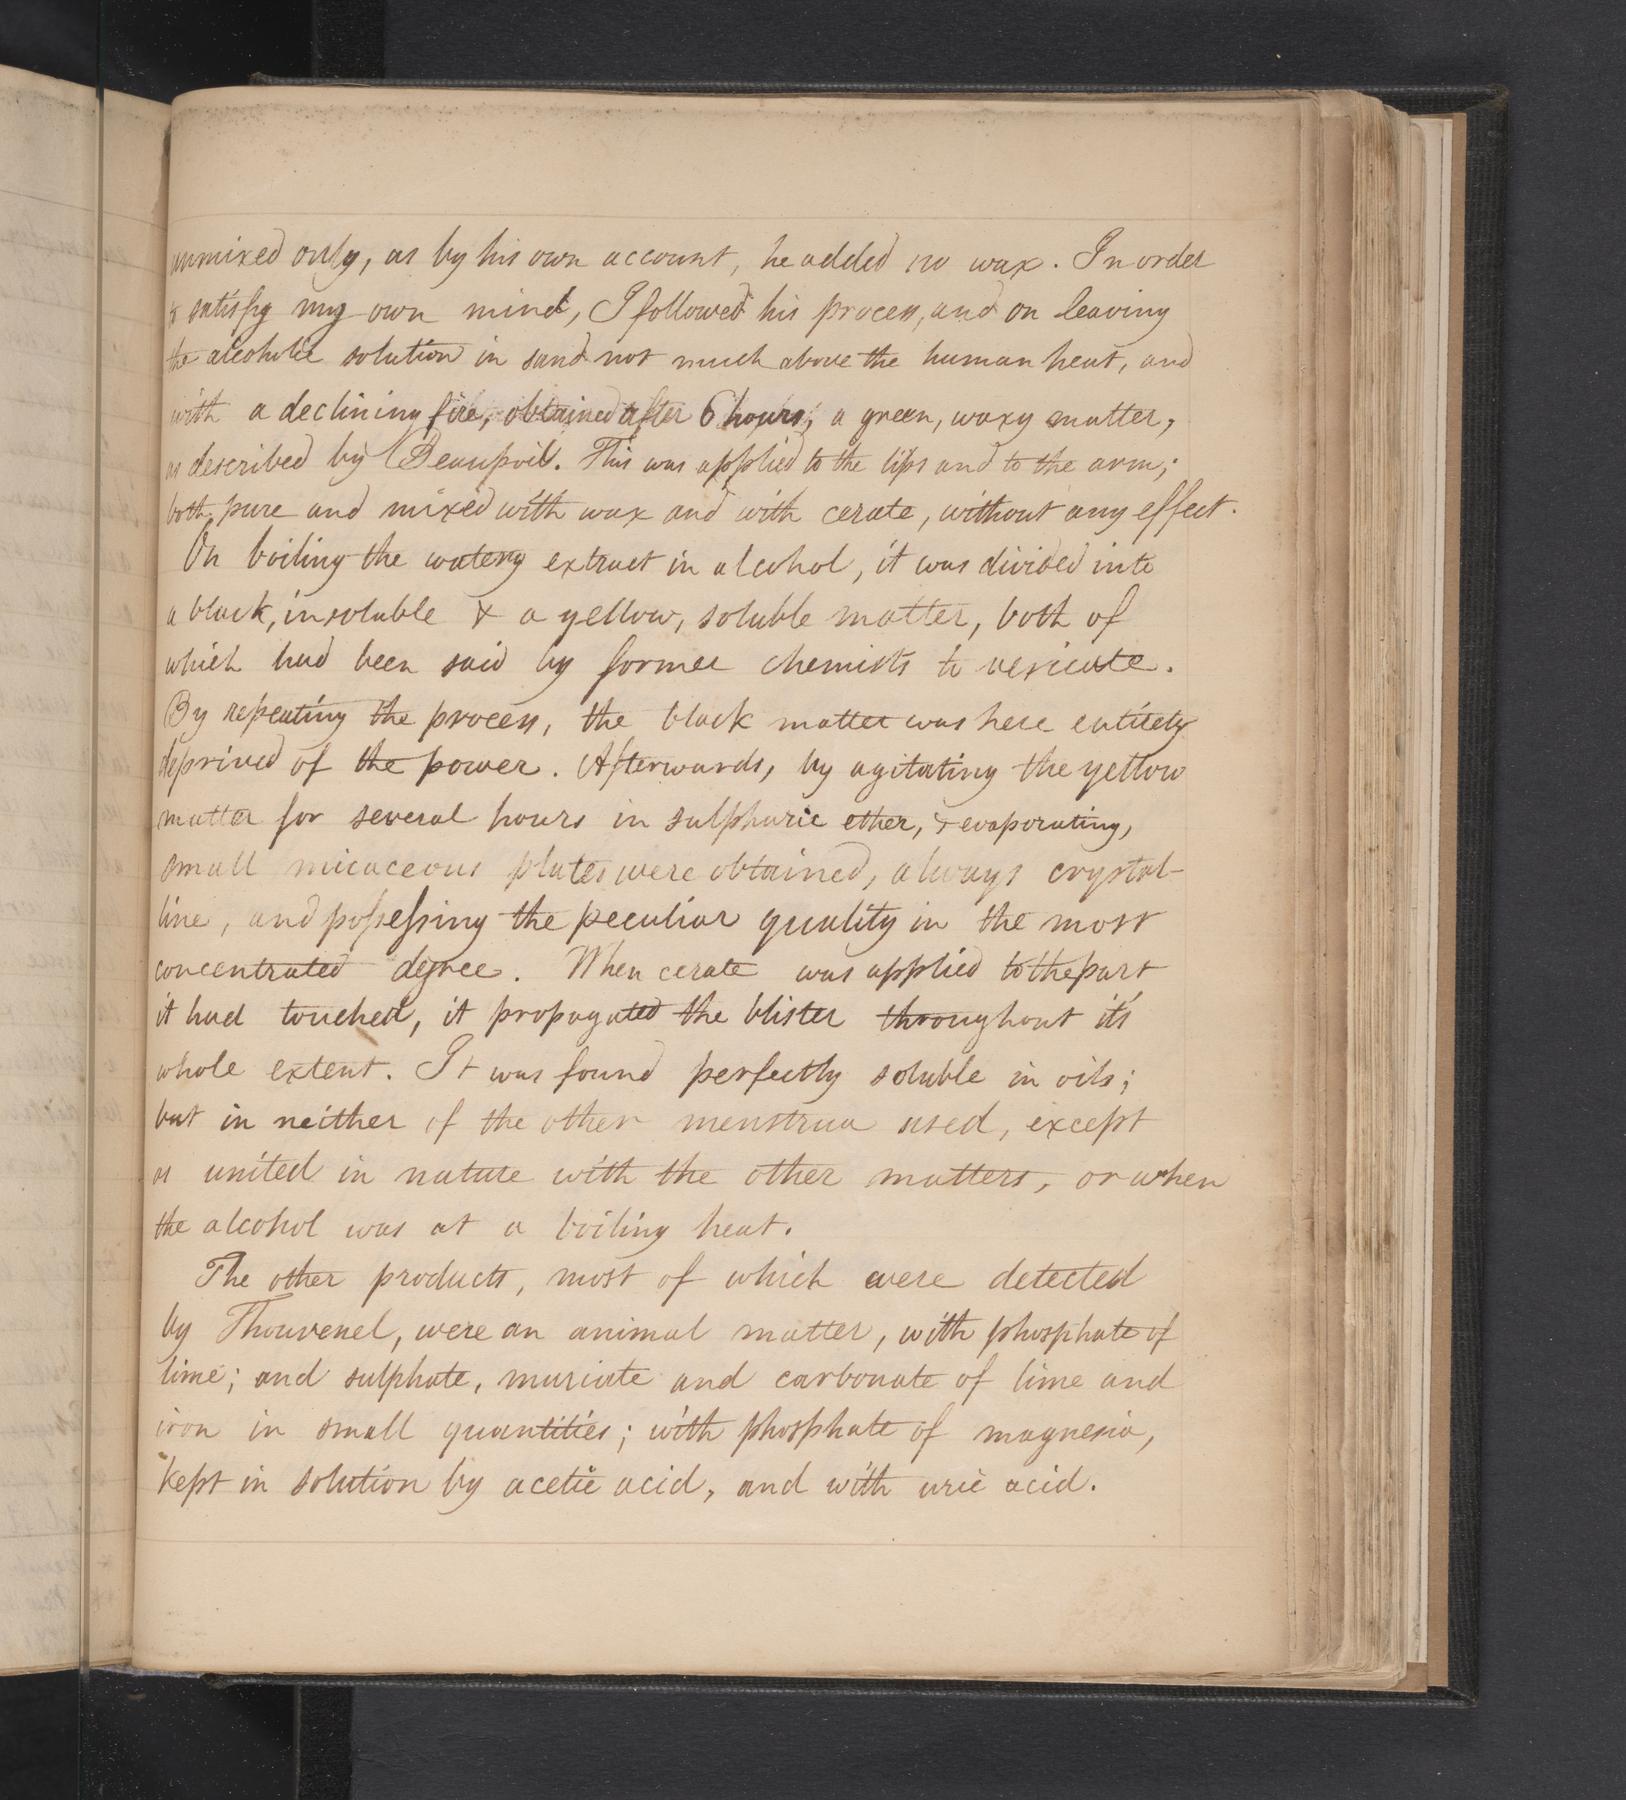 unmixed only, as by his own account, he added no wax. In order
to satisfy my own mind, I followed his process, and on leaving
the alcoholic solution in sand not much above the human heat, and
with a declining fire, obtained after 6 hours, a green, waxy matter,
as described by Beaupoil. This was applied to the lips and to the arm;
both pure and mixed with wax and with cerate, without any effect.
On boiling the watery extract in alcohol, it was divided into
a black, insoluble & a yellow, soluble matter, both of
which had been said by former chemists to vesicate.
By repeating the process, the black matter was here entirely
deprived of the power. Afterwards, by agitating the yellow
matter for several hours in sulphuric ether, & evaporating,
small micaceous plates were obtained, always crystal-
line, and possessing the peculiar quality in the most
concentrated degree. When cerate was applied to the part
it had touched, it propagated the blister throughout it's
whole extent. It was found perfectly soluble in oils;
but in neither of the other menstrua used, except
as united in nature with the other matters, or when
the alcohol was at a boiling heat.
The other products, most of which were detected
by Thouvenel, were an animal matter, with phosphate of
lime; and sulphate, muriate and carbonate of lime and
iron in small quantities; with phosphate of magnesia,
kept in solution by acetic acid, and with uric acid.